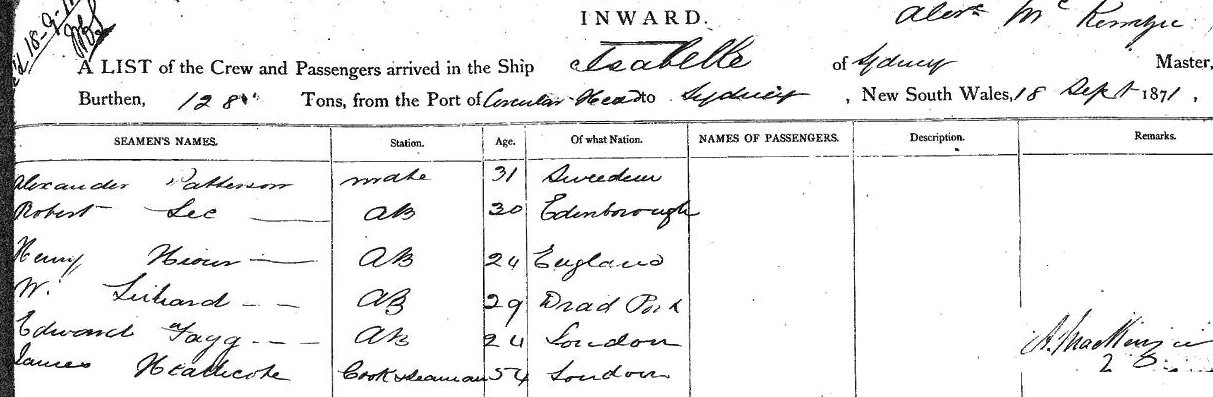 INWARD.
Alexr Mc Kenzie
A LIST of the Crew and Passengers arrived in the Ship Isabelle of Sydney Master,
Burthen, 128 Tons, from the Port of Circular Head to Sydney, New South Wales, 18 Sept 1871,
SEAMEN'S NAMES. Station. Age. Of what Nation. NAMES OF PASSENGERS. Description. Remarks.
Alexander Patterson mate 31 Sweeden
Robert Lee AB 30 Edenborough
Henry AB 24 England
W. AB 29
Edward Fagg AB 24 London
James Heathcote Cook & Seaman 54 London
A. MacKenzie